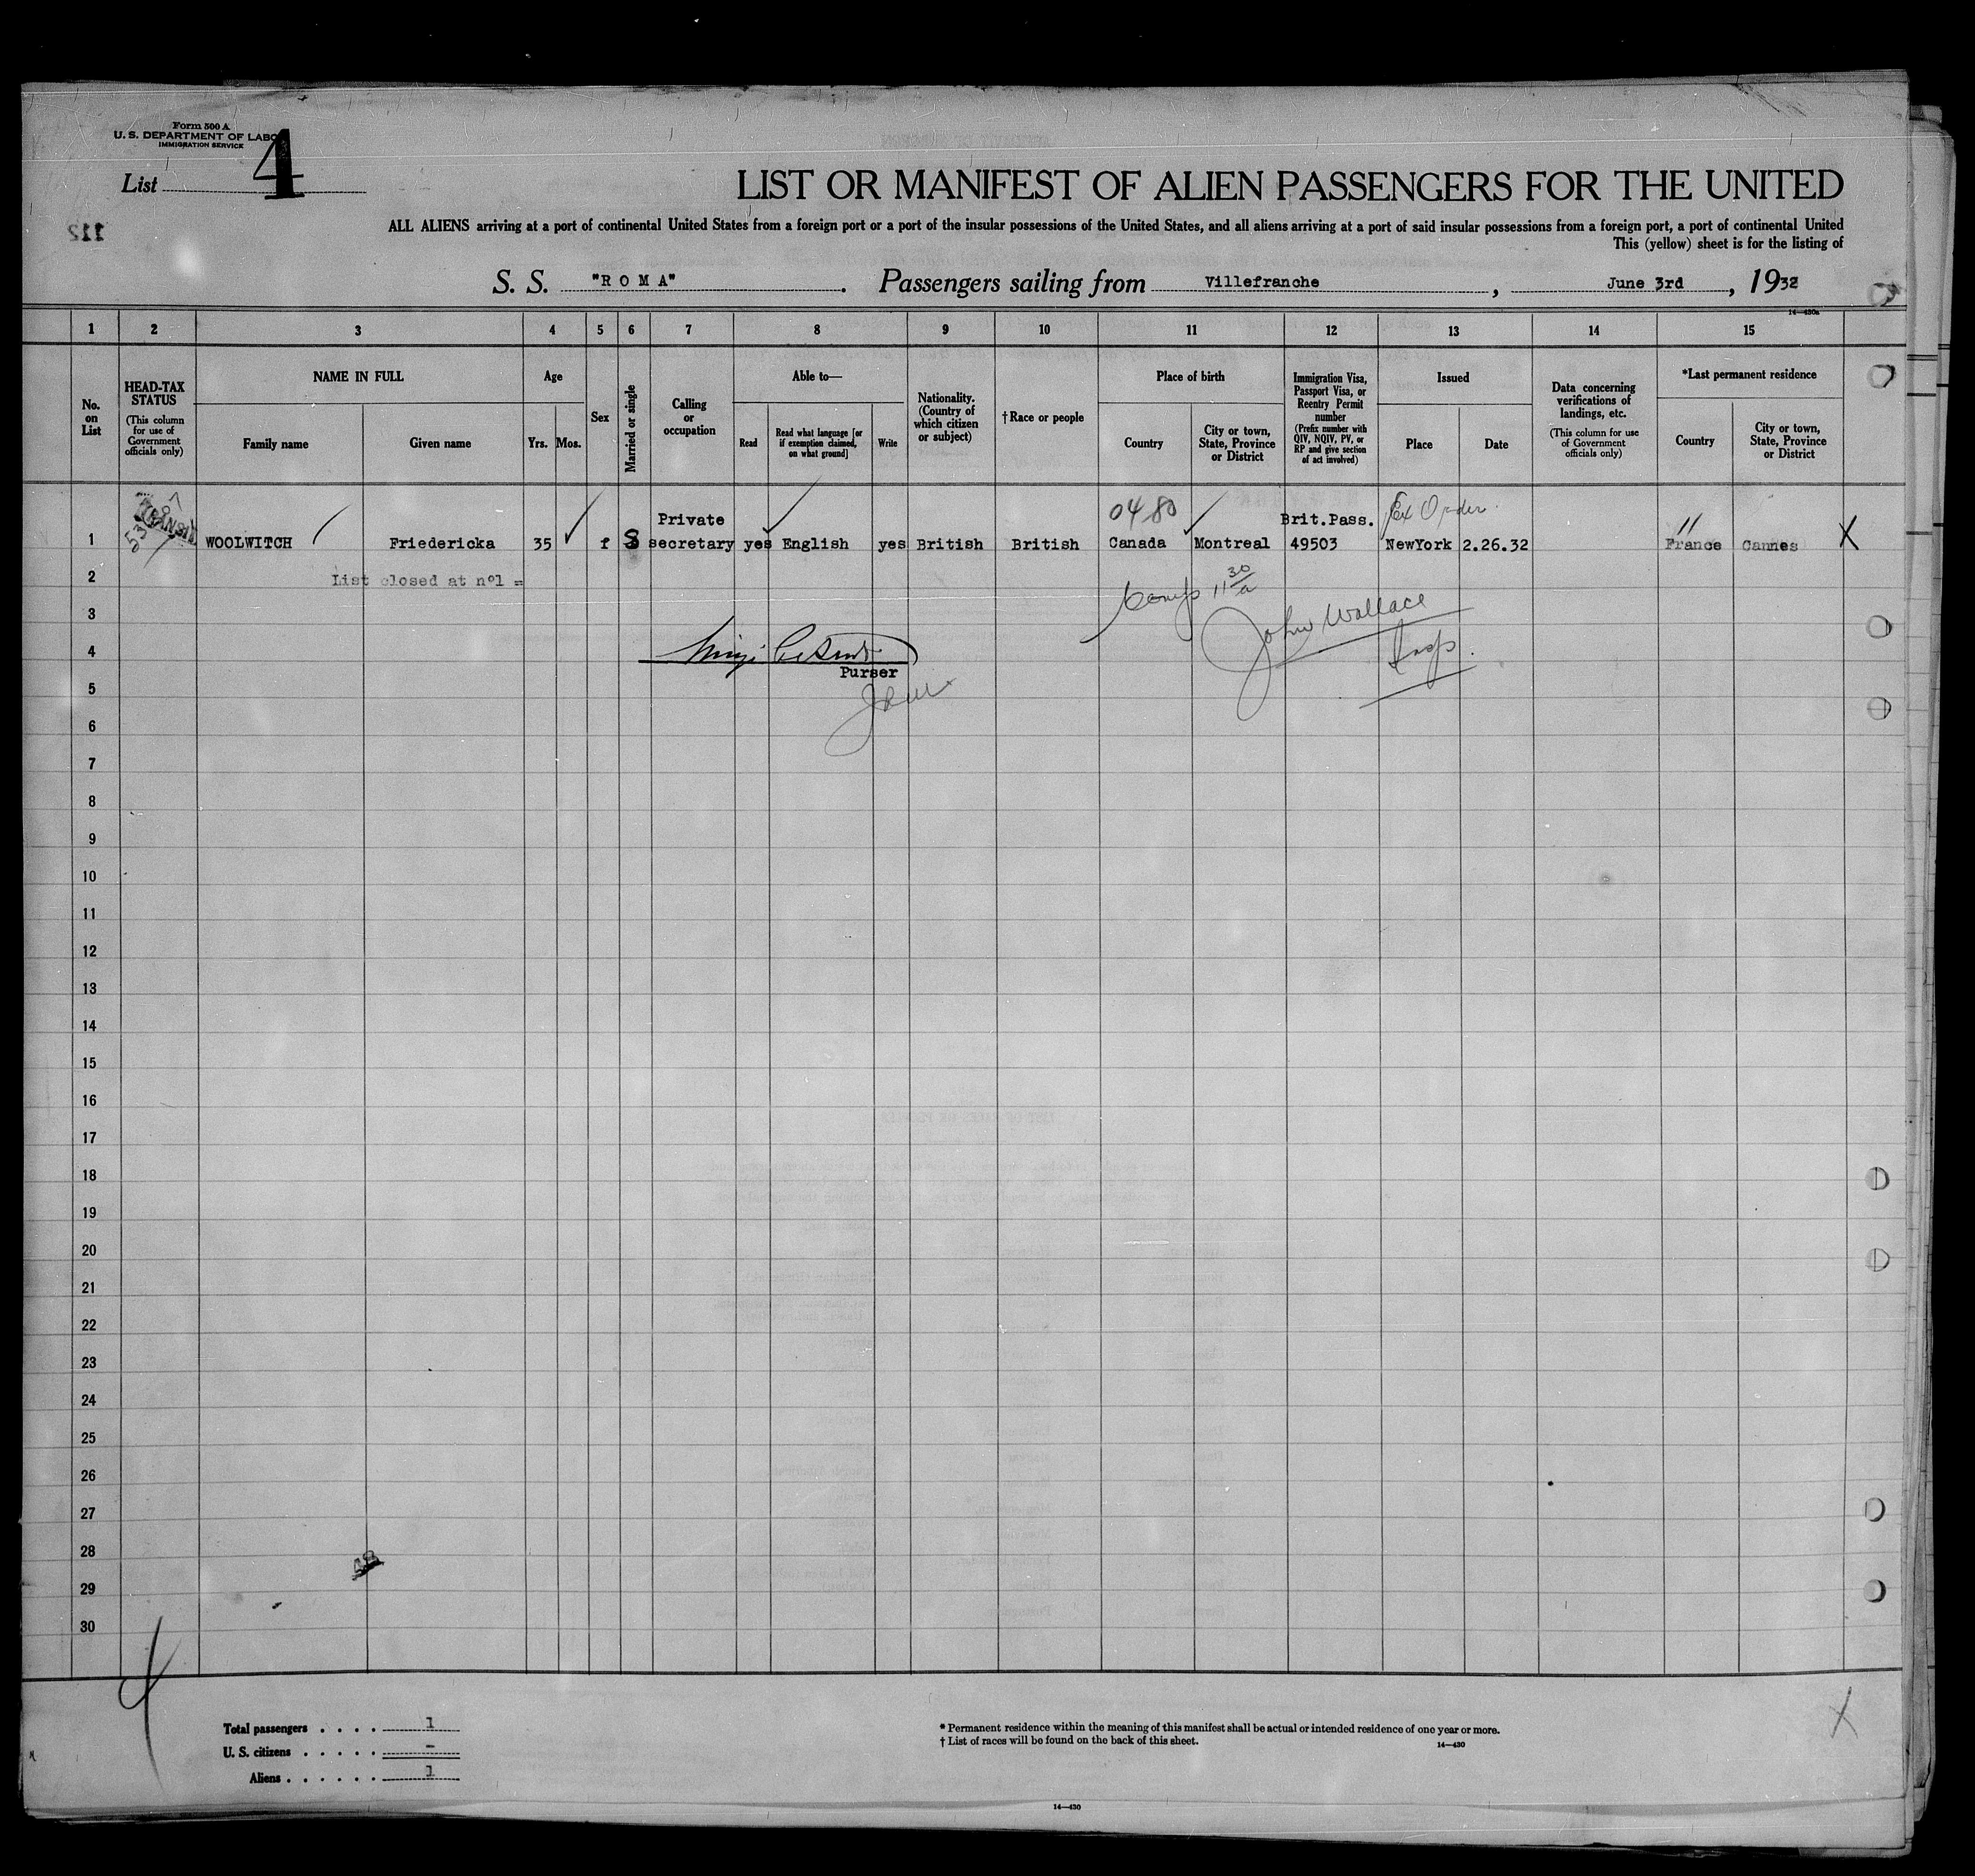 Form 500 A
U. S. DEPARTMENT OF LABO
IMMIGRATION SERVICE
List 4
112
LIST OR MANIFEST OF ALIEN PASSENGERS FOR THE UNITED
ALL ALIENS arriving at a port of continental United States from a foreign port or a port of the insular possessions of the United States, and all aliens arriving at a port of said insular possessions from a foreign port, a port of continental United
This (yellow) sheet is for the listing of
S. S. "ROMA". Passengers sailing from Villefranche, June 3rd, 1932
14—430a
1 2 3 4 5 6 7 8 9 10 11 12 13 14 15
No. on List
HEAD-TAX STATUS
(This column for use of Government officials only)
NAME IN FULL
Family name
Given name
Age
Yrs. Mos.
Sex
Married or single
Calling or occupation
Able to—
Read
Read what language [or if exemption claimed, on what ground]
Write
Nationality. (Country of which citizen or subject)
†Race or people
Place of birth
Country
City or town, State, Province or District
Immigration Visa, Passport Visa, or Reentry Permit number
(Prefix number with QIV, NQIV, PV, or RP and give section of act involved)
Issued
Place
Date
Data concerning verifications of landings, etc.
(This column for use of Government officials only)
*Last permanent residence
Country
City or town, State, Province or District
TRANSIT
0480
Ex Order
Private Brit.Pass.
1 WOOLWITCH Friedericka 35 f S secretary yes English yes British British Canada Montreal 49503 NewYork 2.26.32 France Cannes X
2 List closed at nº1 =
11 30/a
3
John Wallace
4
Insp.
Purser
5
6
7
8
9
10
11
12
13
14
15
16
17
18
19
20
21
22
23
24
25
26
27
28
29
30
Total passengers . . . . 1
U. S. citizens . . . . . –
Aliens . . . . . . 1
* Permanent residence within the meaning of this manifest shall be actual or intended residence of one year or more.
† List of races will be found on the back of this sheet.
14—430
X
14—430